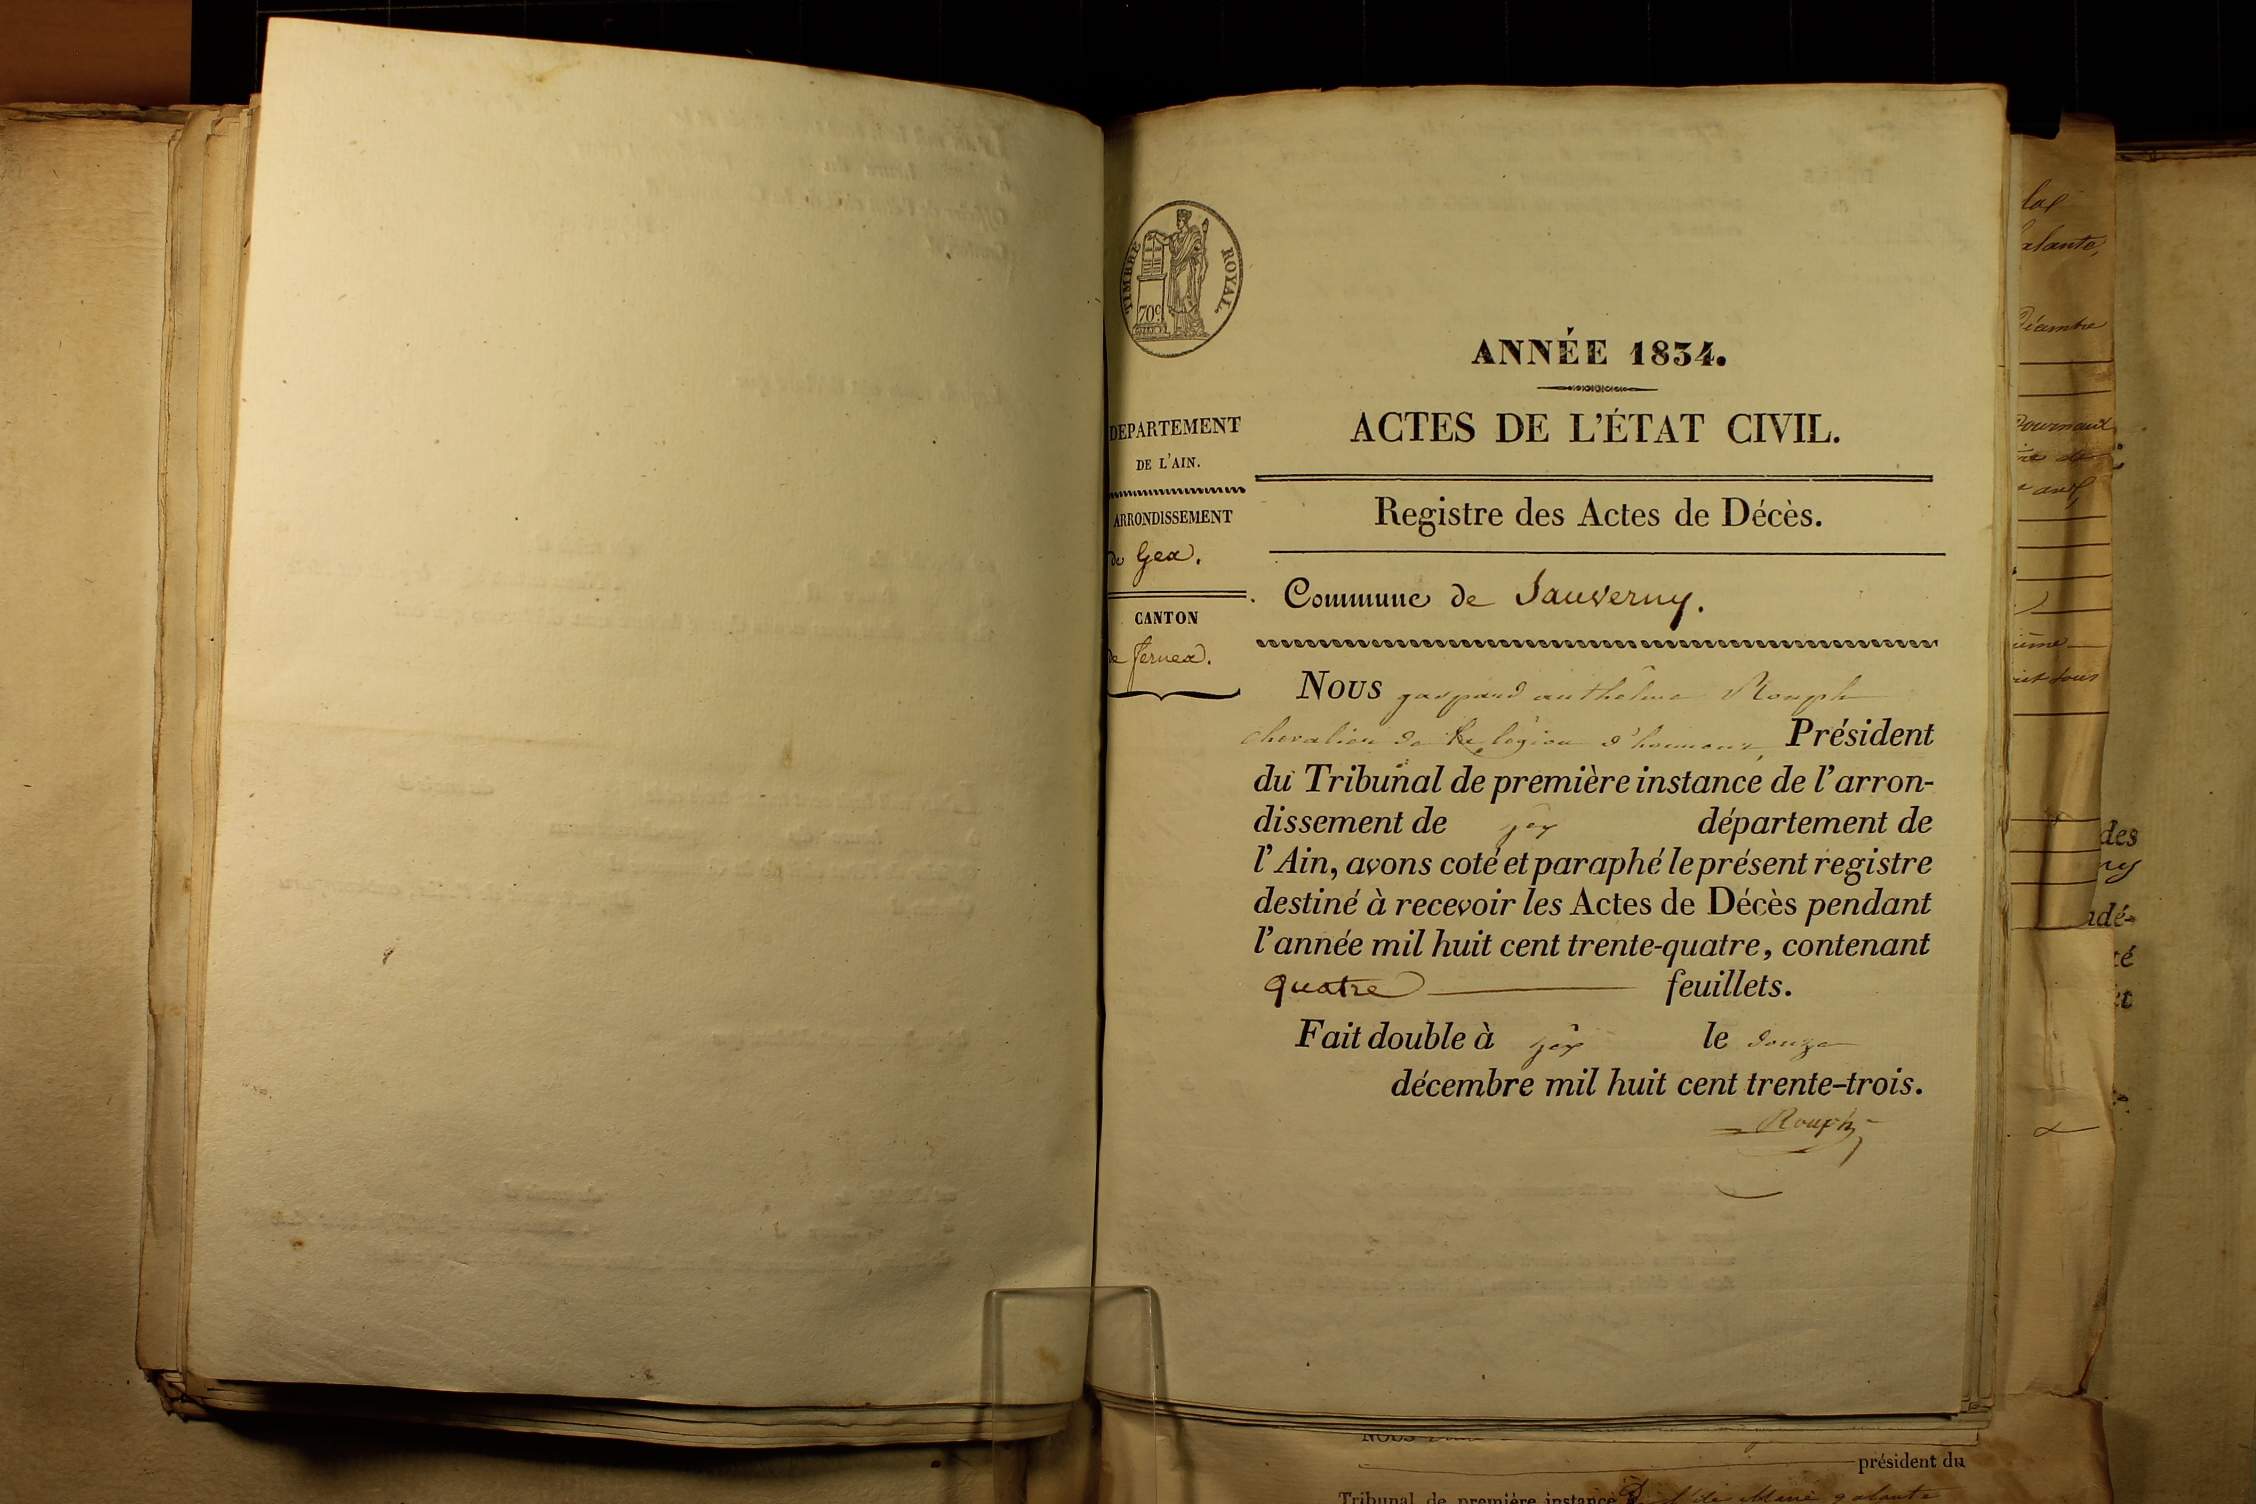 TIMBRE ROYAL
70c
ANNÉE 1834.
ACTES DE L'ÉTAT CIVIL.
DEPARTEMENT
DE L'AIN.
ARRONDISSEMENT
de Gex.
CANTON
de Fernex.
Registre des Actes de Décès.
Commune de Sauverny.
Nous gaspard anthelme Rouph
chevalier de la légion d'honneur, Président
du Tribunal de première instance de l'arron-
dissement de gex département de
l'Ain, avons coté et paraphé le présent registre
destiné à recevoir les Actes de Décès pendant
l'année mil huit cent trente-quatre, contenant
quatre feuillets.
Fait double à gex le douze
décembre mil huit cent trente-trois.
Rouph
alante,
Décembre
des
adé-
président du
Tribunal de première instance